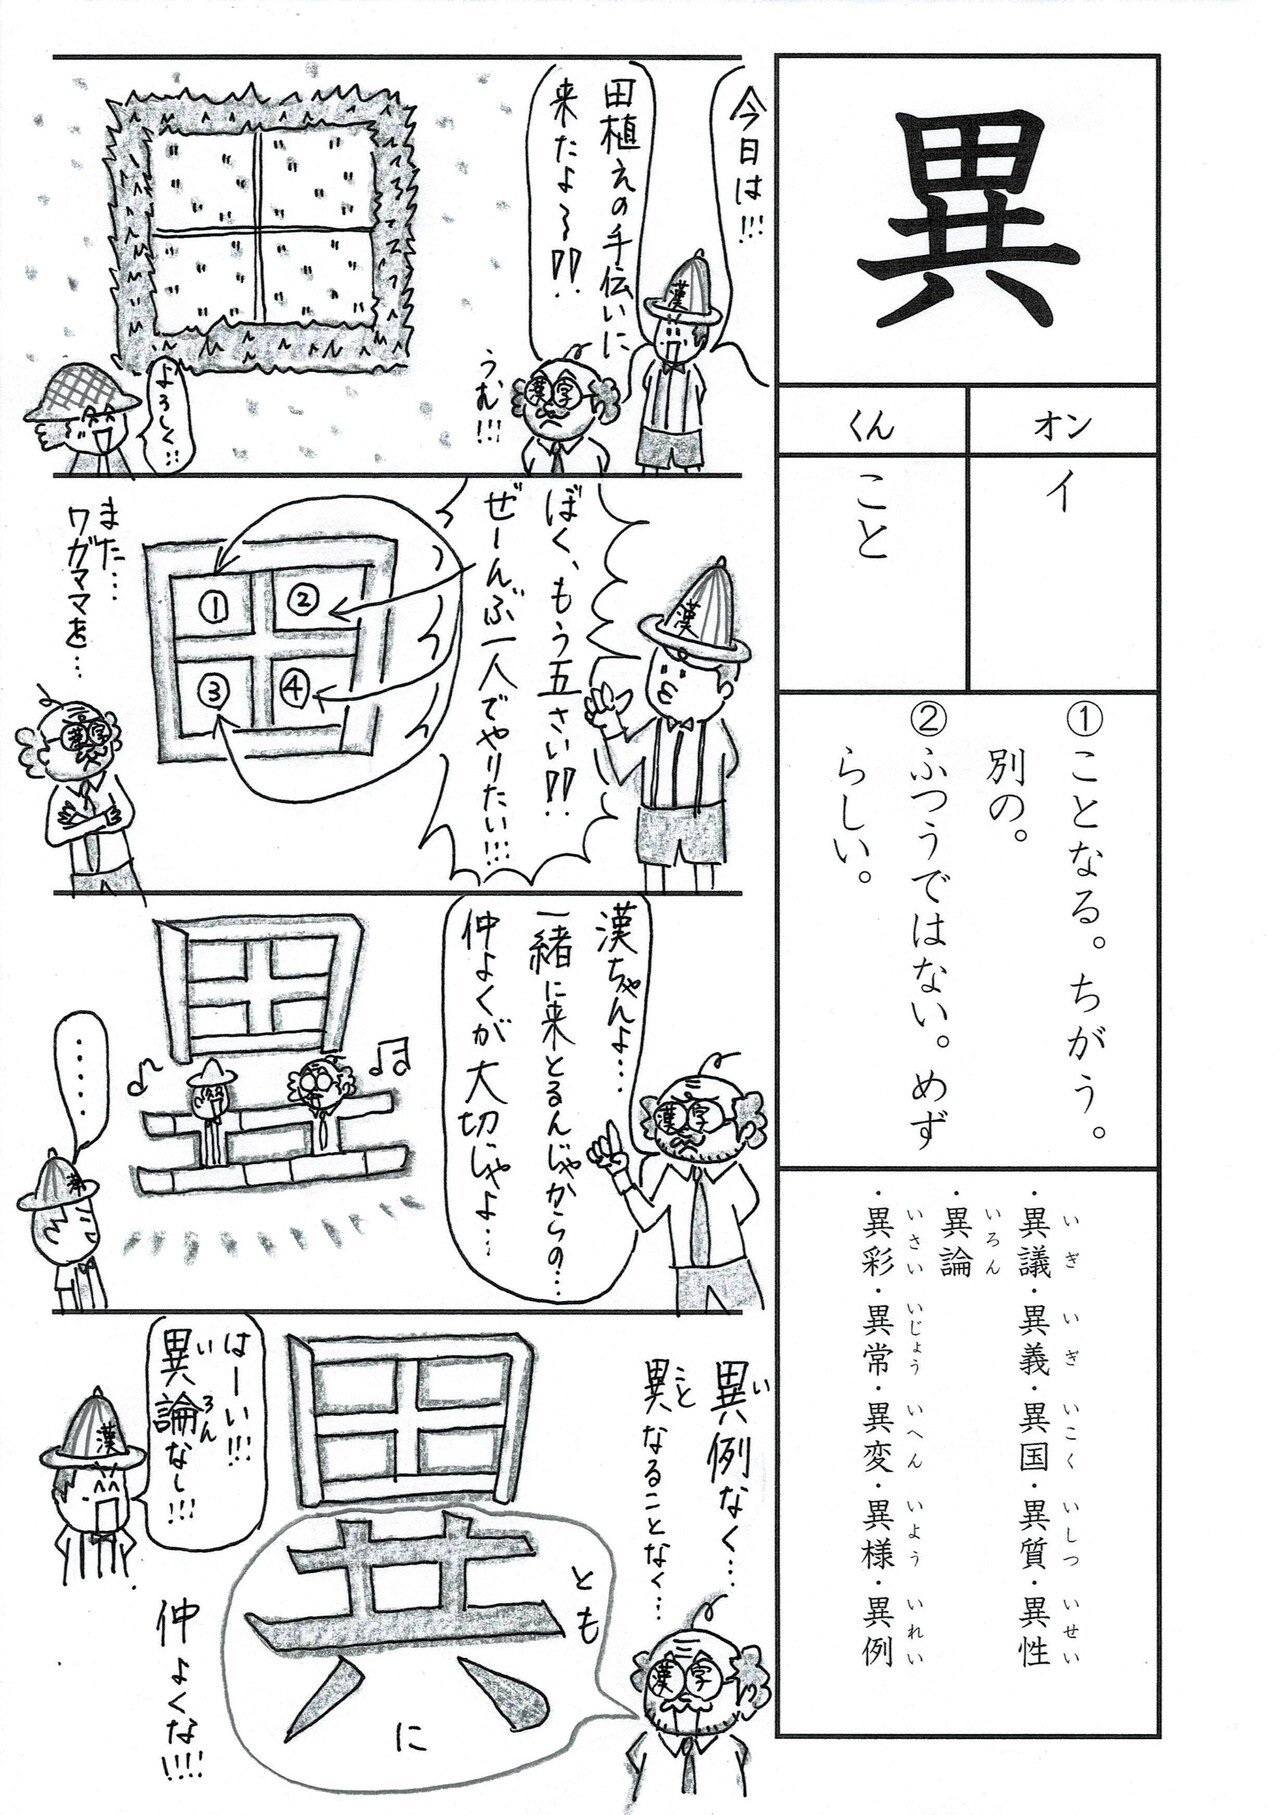 異
オン
くん
イ
こと
①ことなる。ちがう。
別の。
②ふつうではない。めず
らしい。
・異議・異義・異国・異質・異性
いぎ いぎ いこく いしつ いせい
・異論
いろん
・異彩・異常・異変・異様・異例
いさい いじょう いへん いよう いれい
今日は!!!
田植えの手伝いに
来たよ〜!!
漢
漢字
うむ!!!
よろしく!!
ぼく、もう五さい!!
ぜーんぶ一人でやりたい!!!
漢
①
②
③
④
また…
ワガママを…
漢字
漢ちゃんよ…
一緒に来とるんじゃからの…
仲よくが大切じゃよ…
漢字
田
‥‥‥
漢
異例なく…
い
異なることなく…
こと
漢字
田
共
とも
に
仲よくな!!!!
はーい!!!
異論なし!!!
いろん
漢